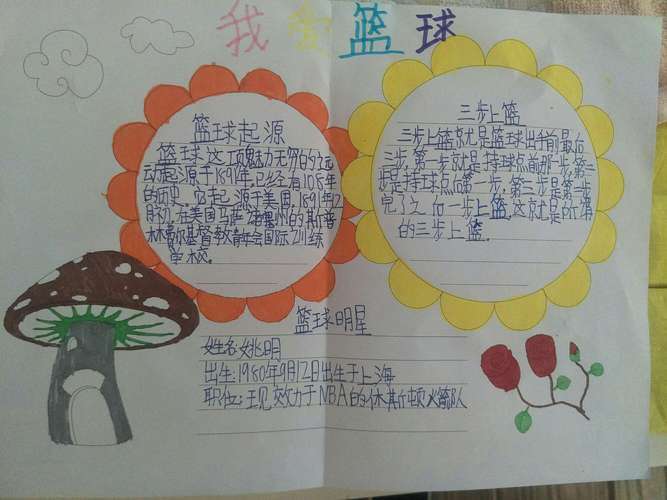 我爱篮球
篮球起源
篮球这项魅力无穷的运
动起源于1891年,已经有108年
的历史。它起源于美国,1891年12
月初,在美国马萨诸塞州的斯普
林菲尔德基督教青年会国际训练
学校。
三步上篮
三步上篮就是篮球出手前最后
三步,第一步就是持球点前那一步,第二
步是持球点后第一步,第三步是第二步
完了之后一步上篮,这就是所谓
的三步上篮。
篮球明星
姓名:姚明
出生:1980年9月12日出生于上海
职位:现效力于NBA的休斯顿火箭队